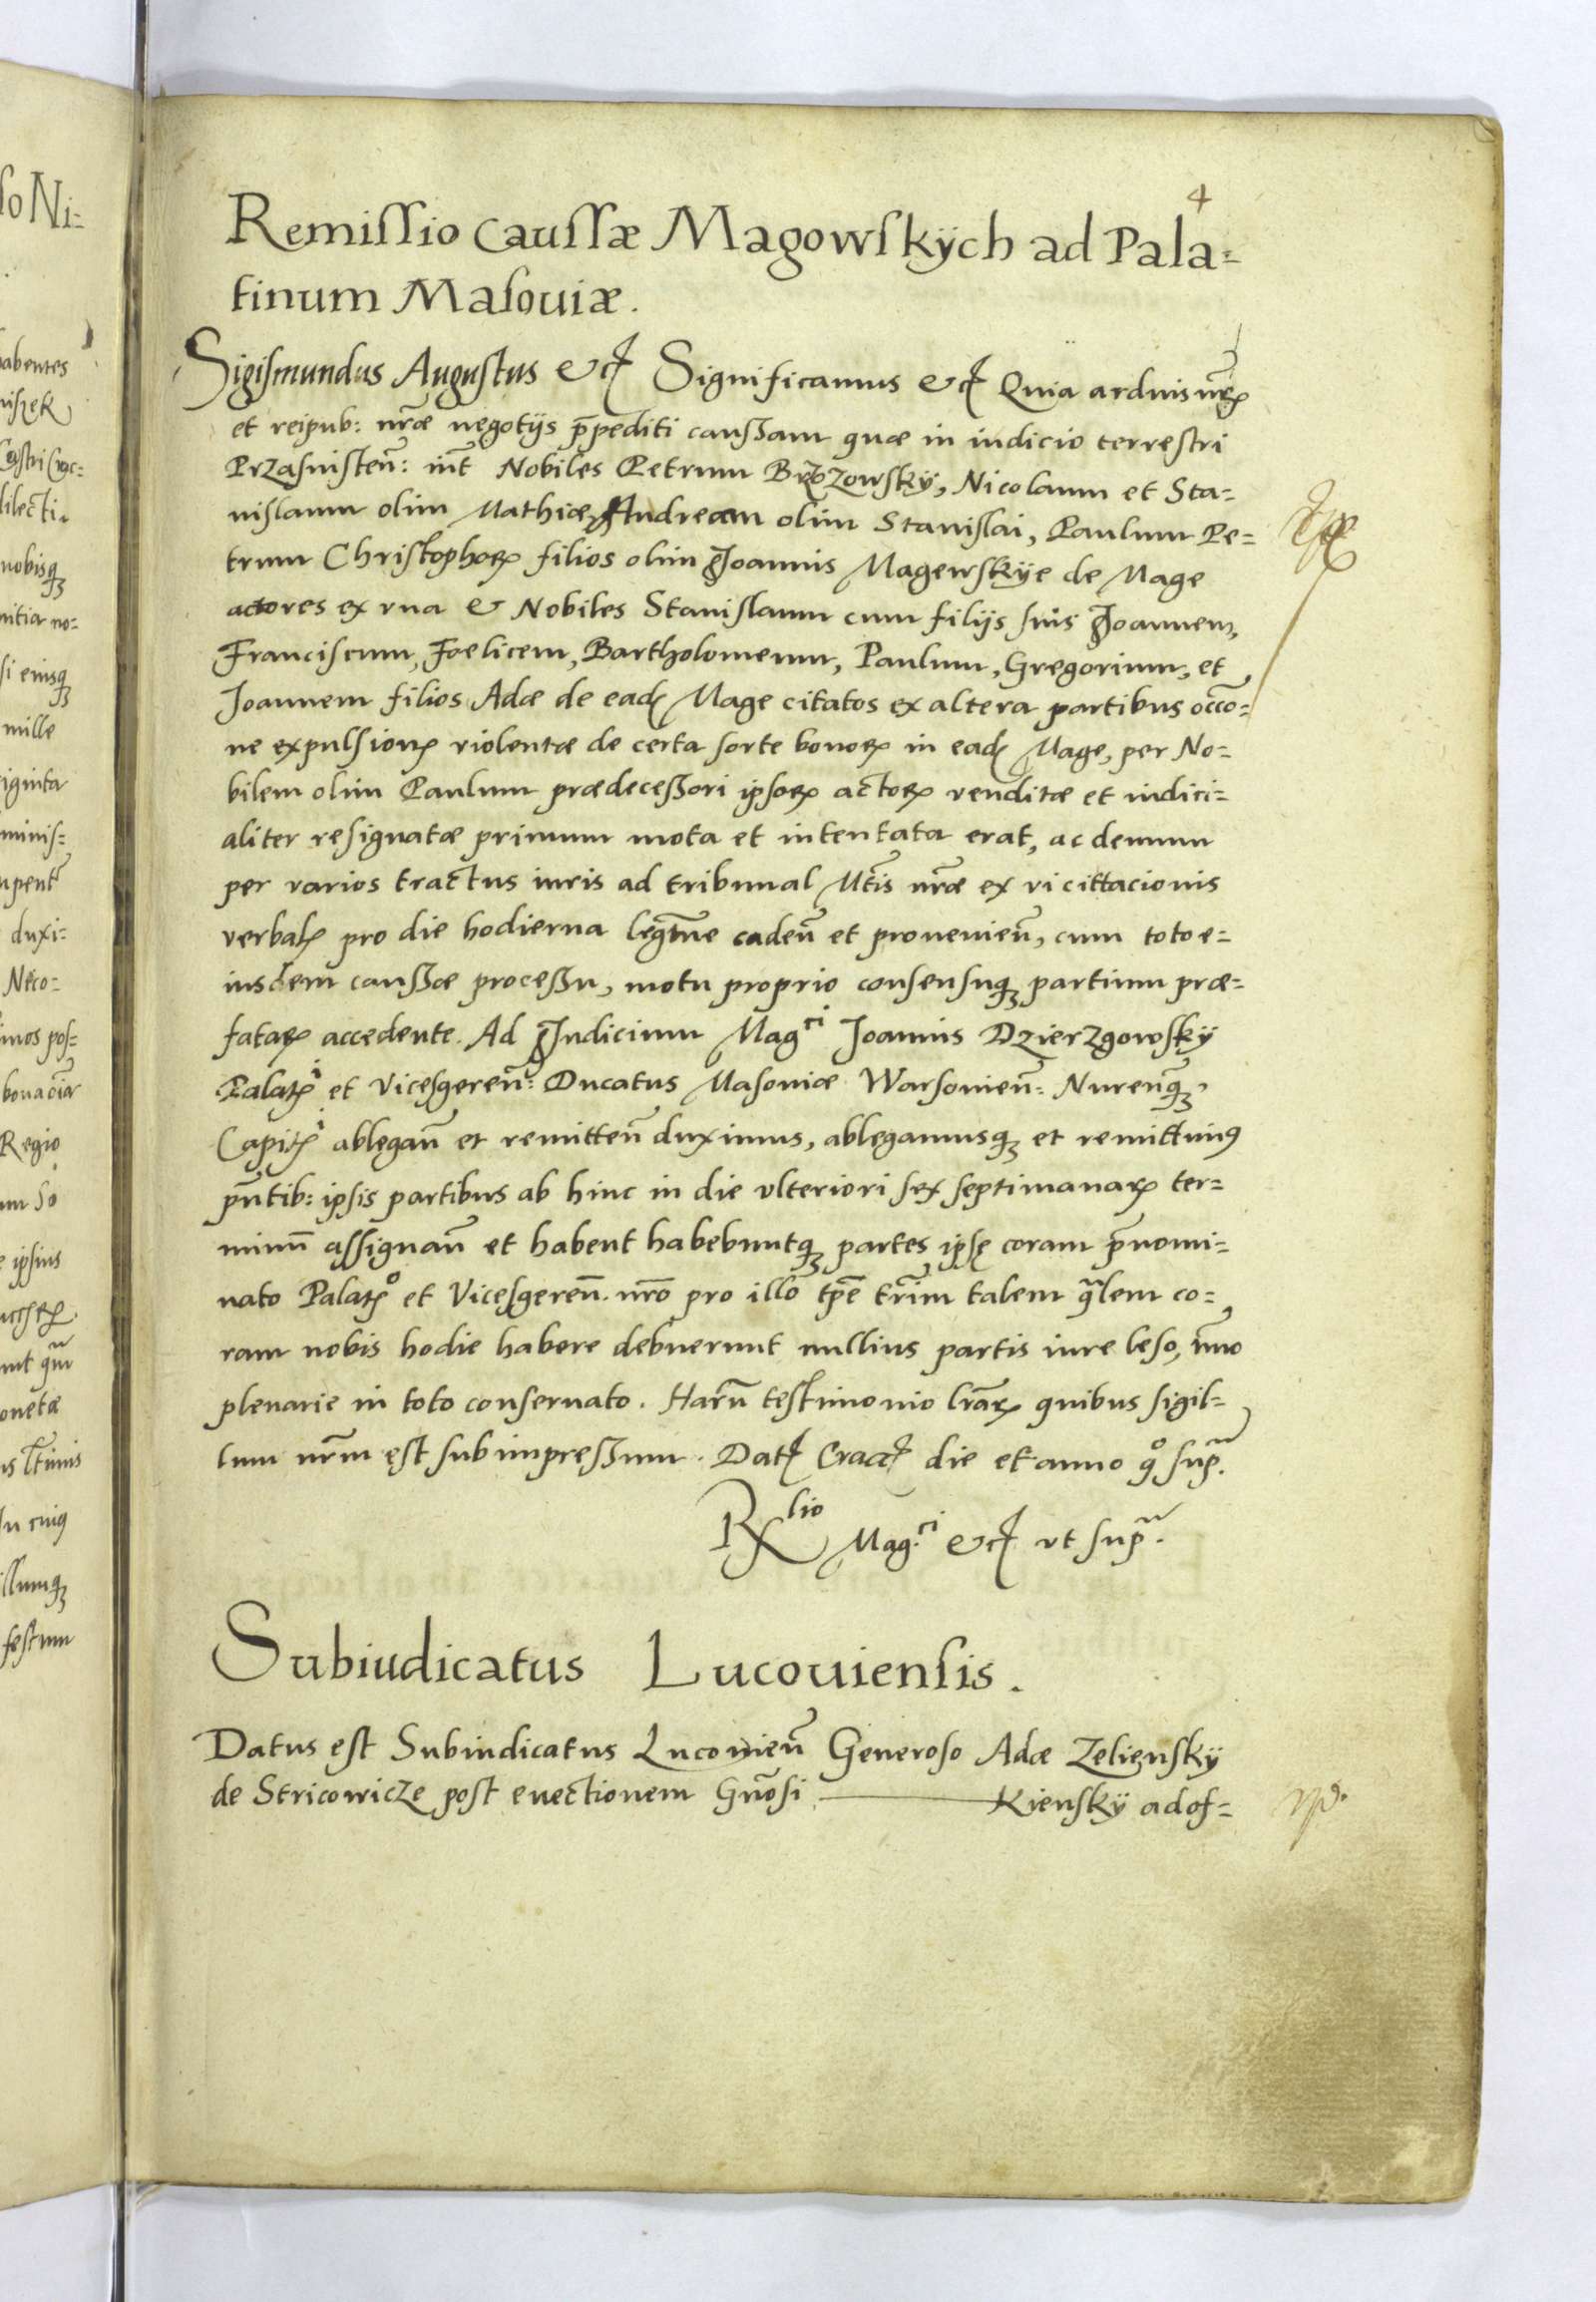 4
Remissio Caussæ Magowskÿch ad Pala=
tinum Masouiæ.
Sigismundus Augustus etc Significamus etc Quia arduis nr̃is
et reipub: nr̃æ negotijs p̃pediti caussam quæ in iudicio terrestri
Przasnisteñ: int̃ Nobiles Petrum Brzozowsky, Nicolaum et Sta=
nislaum olim Mathiæ, Andream olim Stanislai, Paulum Pe=
trum Christophorꝝ filios olim Joannis Magewskÿe de Mage
actores ex vna & Nobiles Stanislaum cum filijs suis Joannem,
Franciscum, Foelicem, Bartholomeum, Paulum, Gregorium, et
Joannem filios Adæ de eadꝭ Mage citatos ex altera partibus occõ=
ne expulsionꝭ violentæ de certa sorte bonoꝝ in eadꝭ Mage, per No=
bilem olim Paulum prædecessori ipsoꝝ actoꝝ venditæ et iudici=
aliter resignatæ primum mota et intentata erat, ac demum
per varios tractus iuris ad tribunal Mt̃is nr̃æ ex vi cittacionis
verbalꝭ pro die hodierna legt̃me cadeñ et prouenieñ, cum toto e=
iusdem caussæ processu, motu proprio consensuqꝫ partium præ=
fataꝝ accedente. Ad Judicium Mag.ci Joannis Dzierzgowsky
Palatꝭi et Vicesgereñ: Ducatus Masouiæ Warsouieñ: Nureñqꝫ
Capitꝭi ablegañ et remitteñ duximus, ablegamusqꝫ et remittimꝰ
pñtib: ipsis partibus ab hinc in die vlteriori sex septimanaꝝ ter=
minũ assignañ et habent habebuntqꝫ partes ipsę coram p̃nomi=
nato Palatꝭo et Vicesgereñ. nr̃o pro illo tp̃e tr̃im talem q̃lem co=
ram nobis hodie habere debuerunt nullius partis iure leso, im̃o
plenarie in toto conseruato. Harũ testimonio lr̃aꝝ quibus sigil=
lum nr̃m est subimpressum. Datꝭ Cracꝭ die et anno qº sup.ª
Rx lio Mag.ci etc vt sup.ª
Subiudicatus Lucouiensis.
Datus est Subiudicatus Lucouieñ Generoso Adæ Zelienskÿ
de Stricowicze post euectionem Gñosi Kienskÿ ad of=